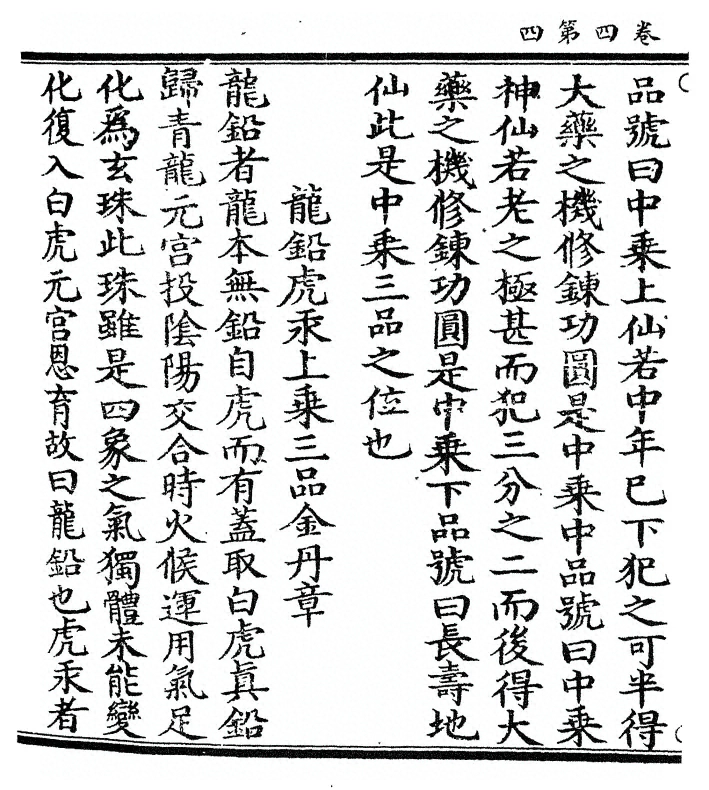 卷四第四
品號曰中乗上仙若中年已下犯之可半得
大藥之機修鍊功圓是中乗中品號曰中乗
神仙若老之極甚而犯三分之二而後得大
藥之機修鍊功圓是中乗下品號曰長壽地
仙此是中乗三品之位也
龍鉛虎汞上乗三品金丹章
龍鉛者龍本無鉛自虎而有蓋取白虎真鉛
歸青龍元宮投陰陽交合時火候運用氣足
化為玄珠此珠雖是四象之氣獨體未能變
化復入白虎元宮恩育故曰龍鉛也虎汞者